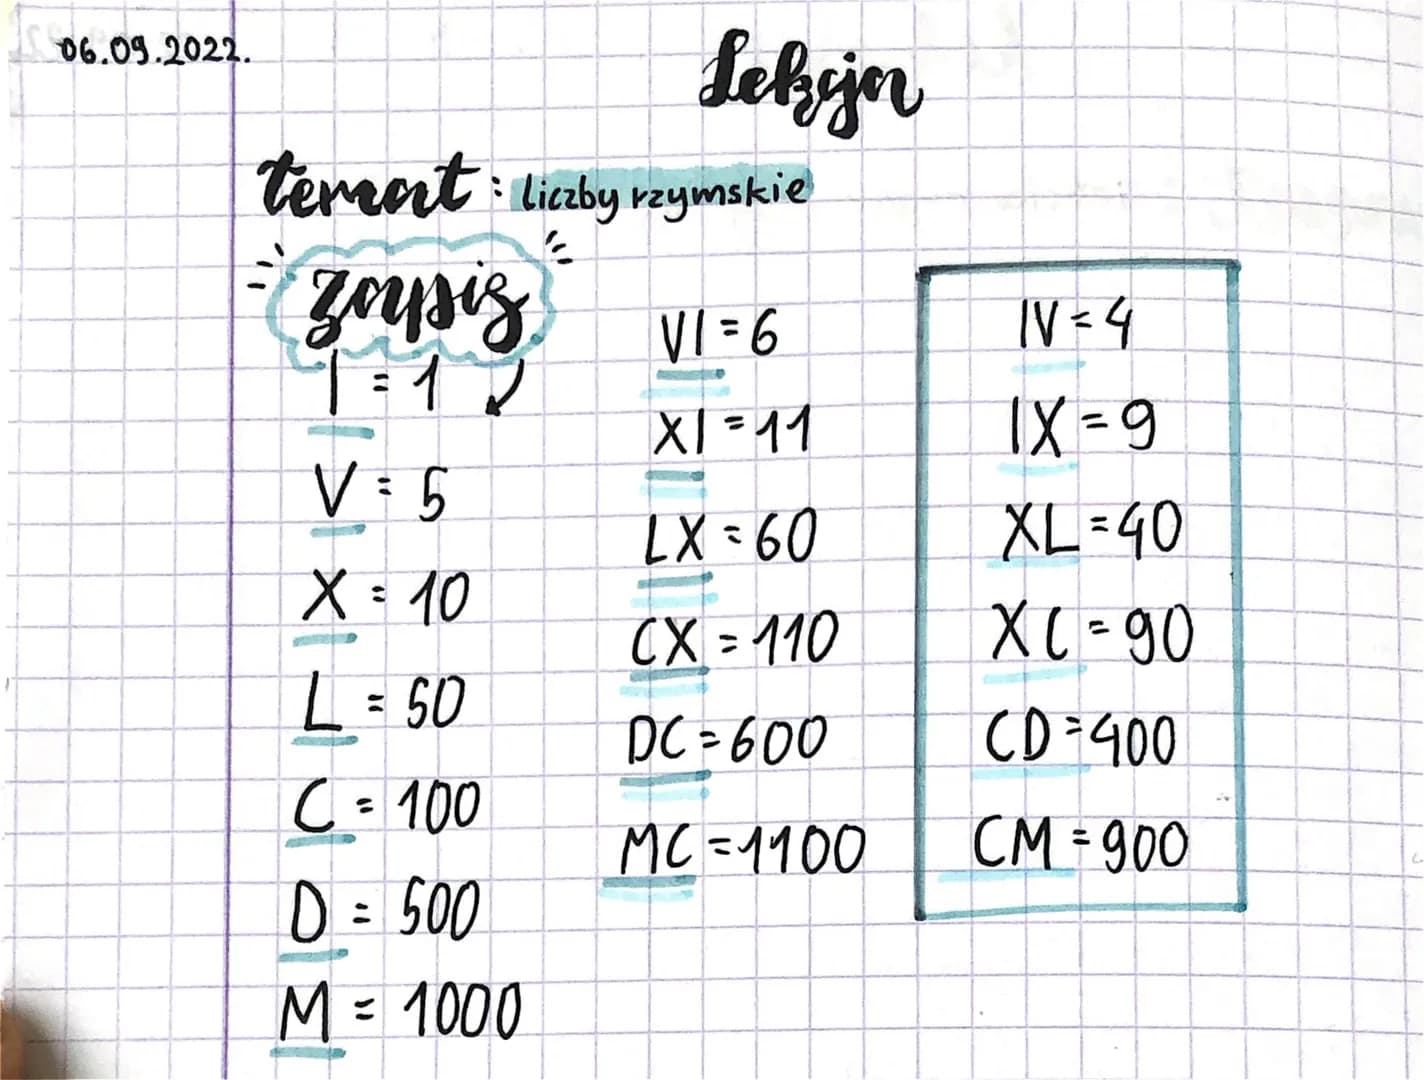 06.09.2022.
Lekcja
temat: liczby rzymskie
zapis
I = 1
V = 5
X = 10
L = 50
C = 100
D = 500
M = 1000
VI = 6
XI = 11
LX = 60
CX = 110
DC = 600
MC = 1100
IV = 4
IX = 9
XL = 40
XC = 90
CD = 400
CM = 900